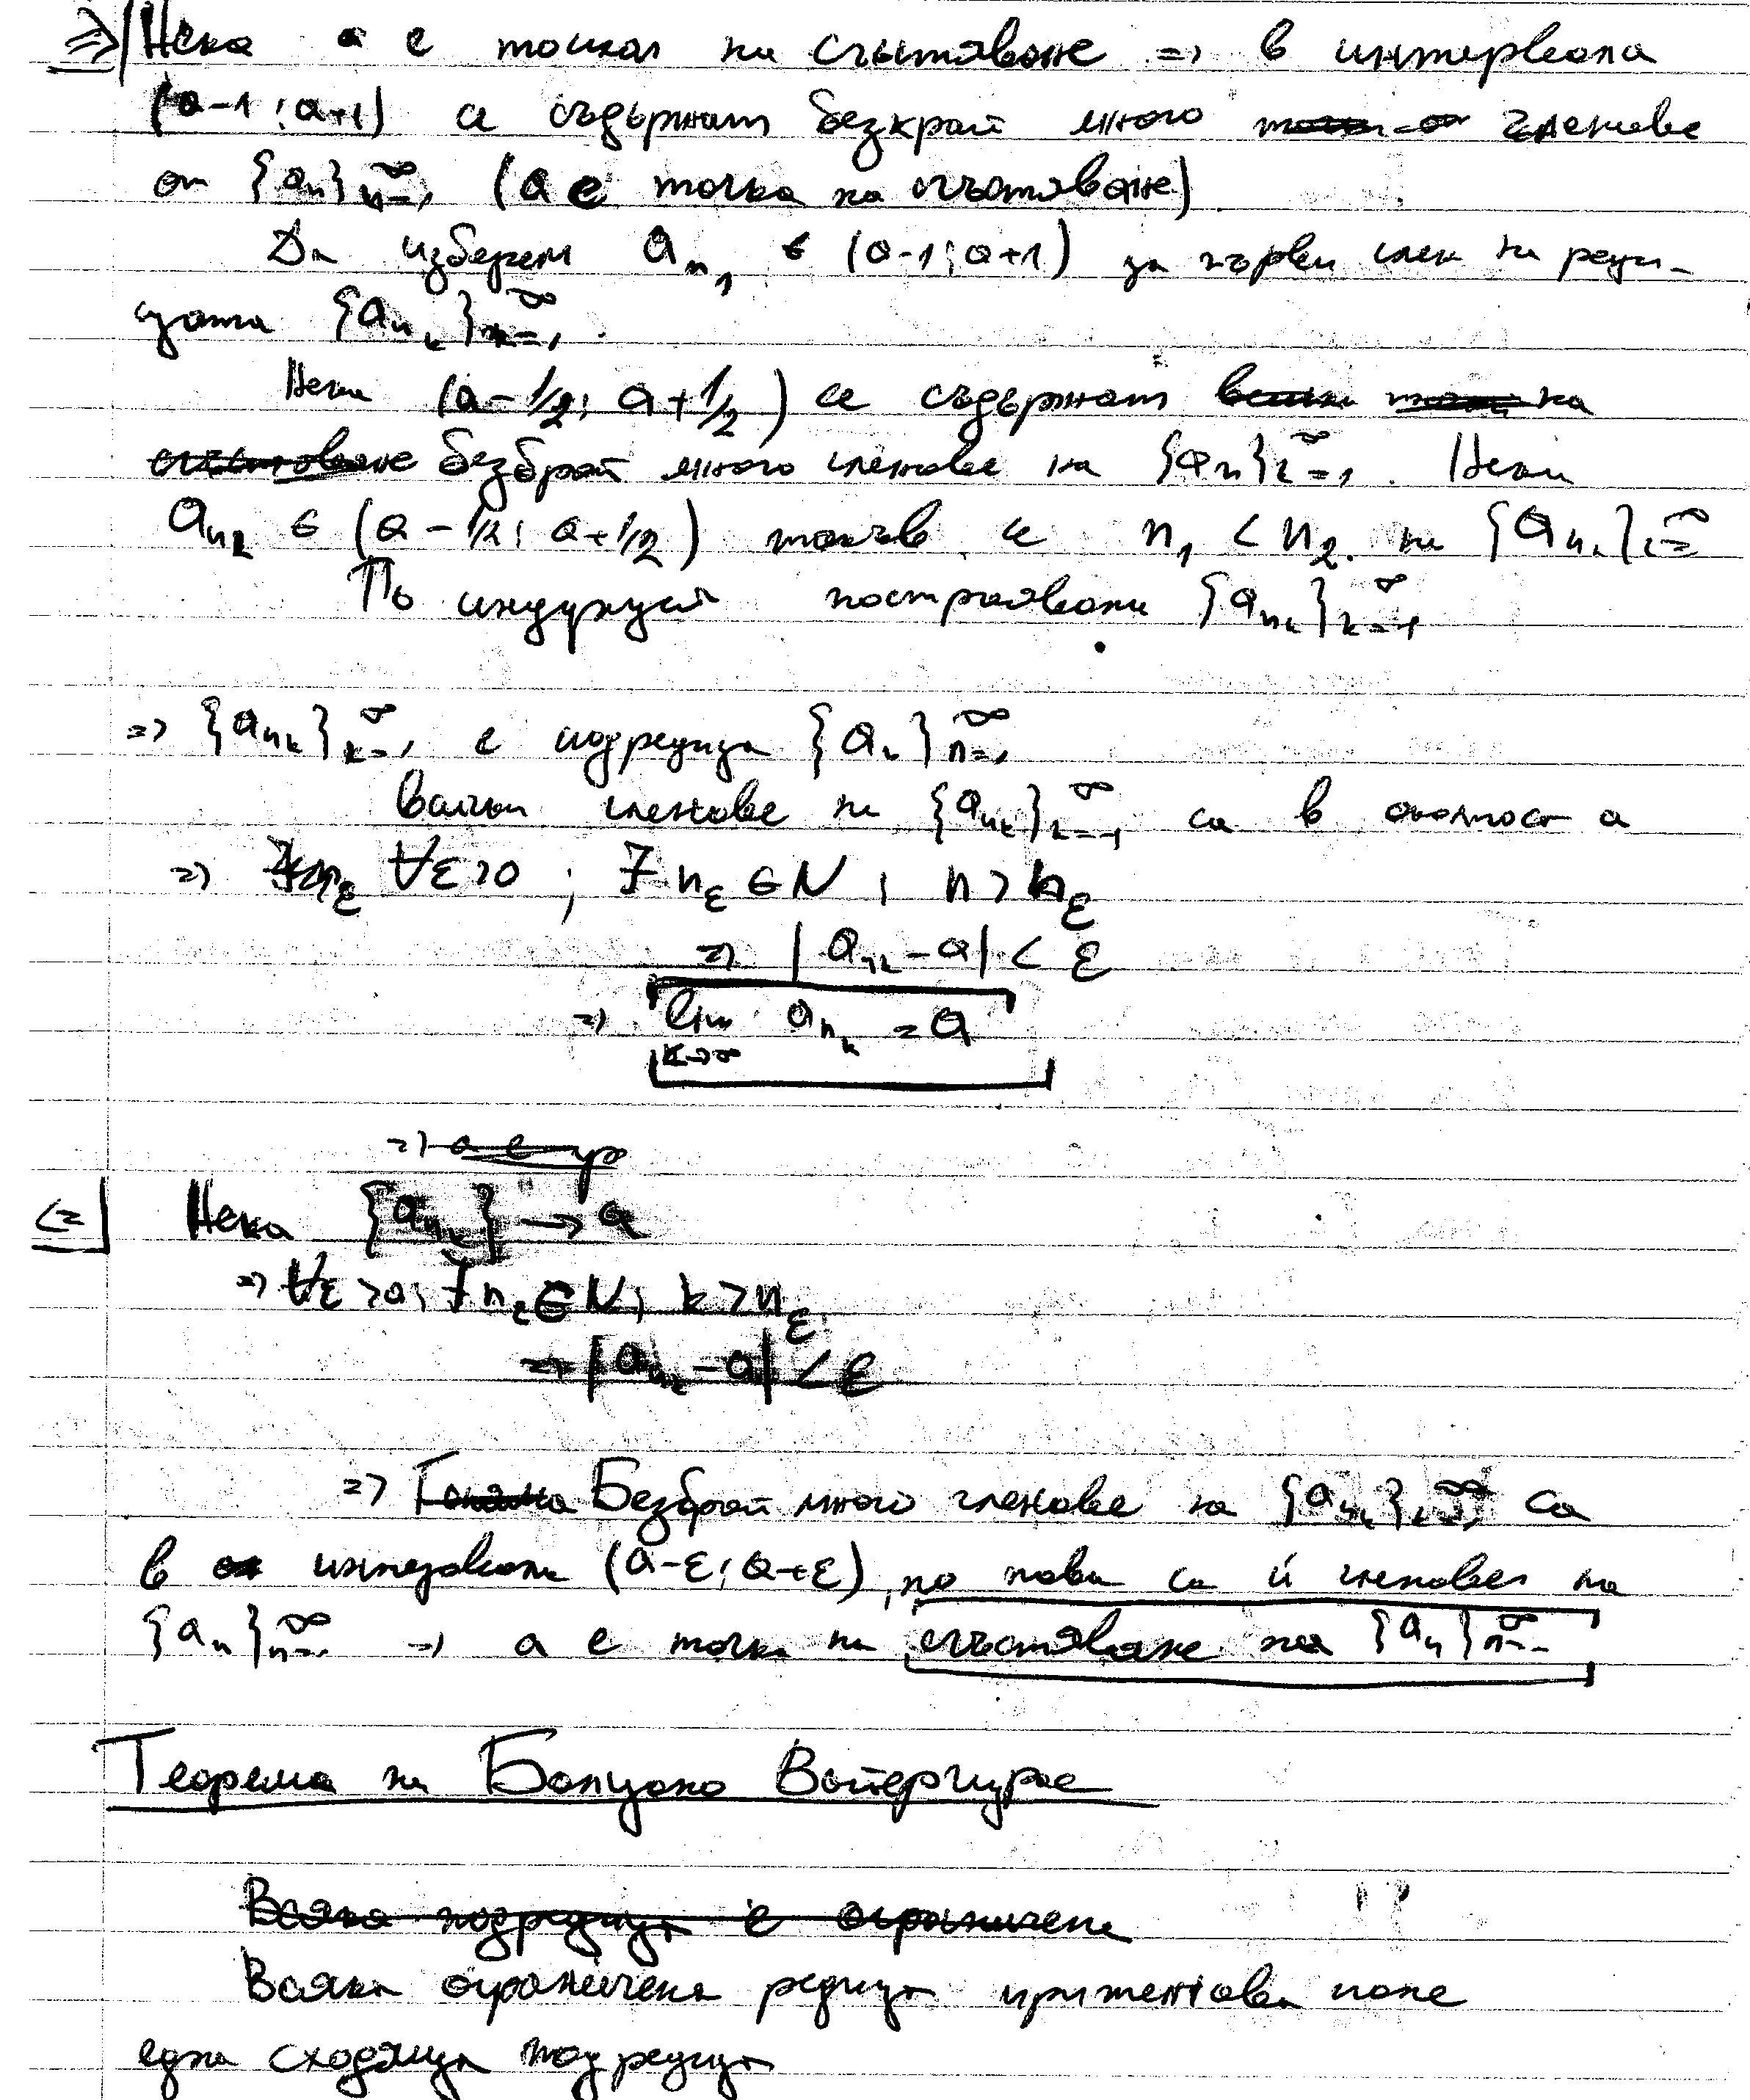 => Нека a е точка на сгъстяване => в интервала
(a-1; a+1) се съдържат безкрай много членове
от {aₙ}ₙ₌₁^∞ (a е точка на сгъстяване).
Да изберем aₙ₁ ∈ (a-1; a+1) за първи член на реди-
цата {aₙₖ}ₖ₌₁^∞.
Нека (a-1/2; a+1/2) се съдържат на
безброй много членове на {aₙ}ₖ₌₁^∞. Нека
aₙ₂ ∈ (a-1/2; a+1/2) че n₁ < n₂. на {aₙₖ}ₖ₌^∞
По индукция построяваме {aₙₖ}ₖ₌₁^∞
=> {aₙₖ}ₖ₌₁^∞ е подредица {aₙ}ₙ₌₁^∞
членове на {aₙₖ}ₖ₌₁^∞ са в околност a
=> ∀ε>0; ∃ n_ε ∈ N; n > n_ε
=> |aₙₖ - a| < ε
=> lim aₙₖ = a
k→∞
=> a е
<=| Нека {aₙₖ} → a
=> ∀ε>0; ∃ n_ε ∈ N; k > n_ε
=> |aₙₖ - a| < ε
=> Безброй много членове на {aₙₖ}ₖ₌₁^∞ са
в интервала (a-ε; a+ε), но това са и членове на
{aₙ}ₙ₌₁^∞ => a е точка на сгъстяване на {aₙ}ₙ₌₁^∞
Теорема на Болцано Вайерщрас
Всяка подредица е ограничена
Всяка ограничена редица притежава поне
една сходяща подредица